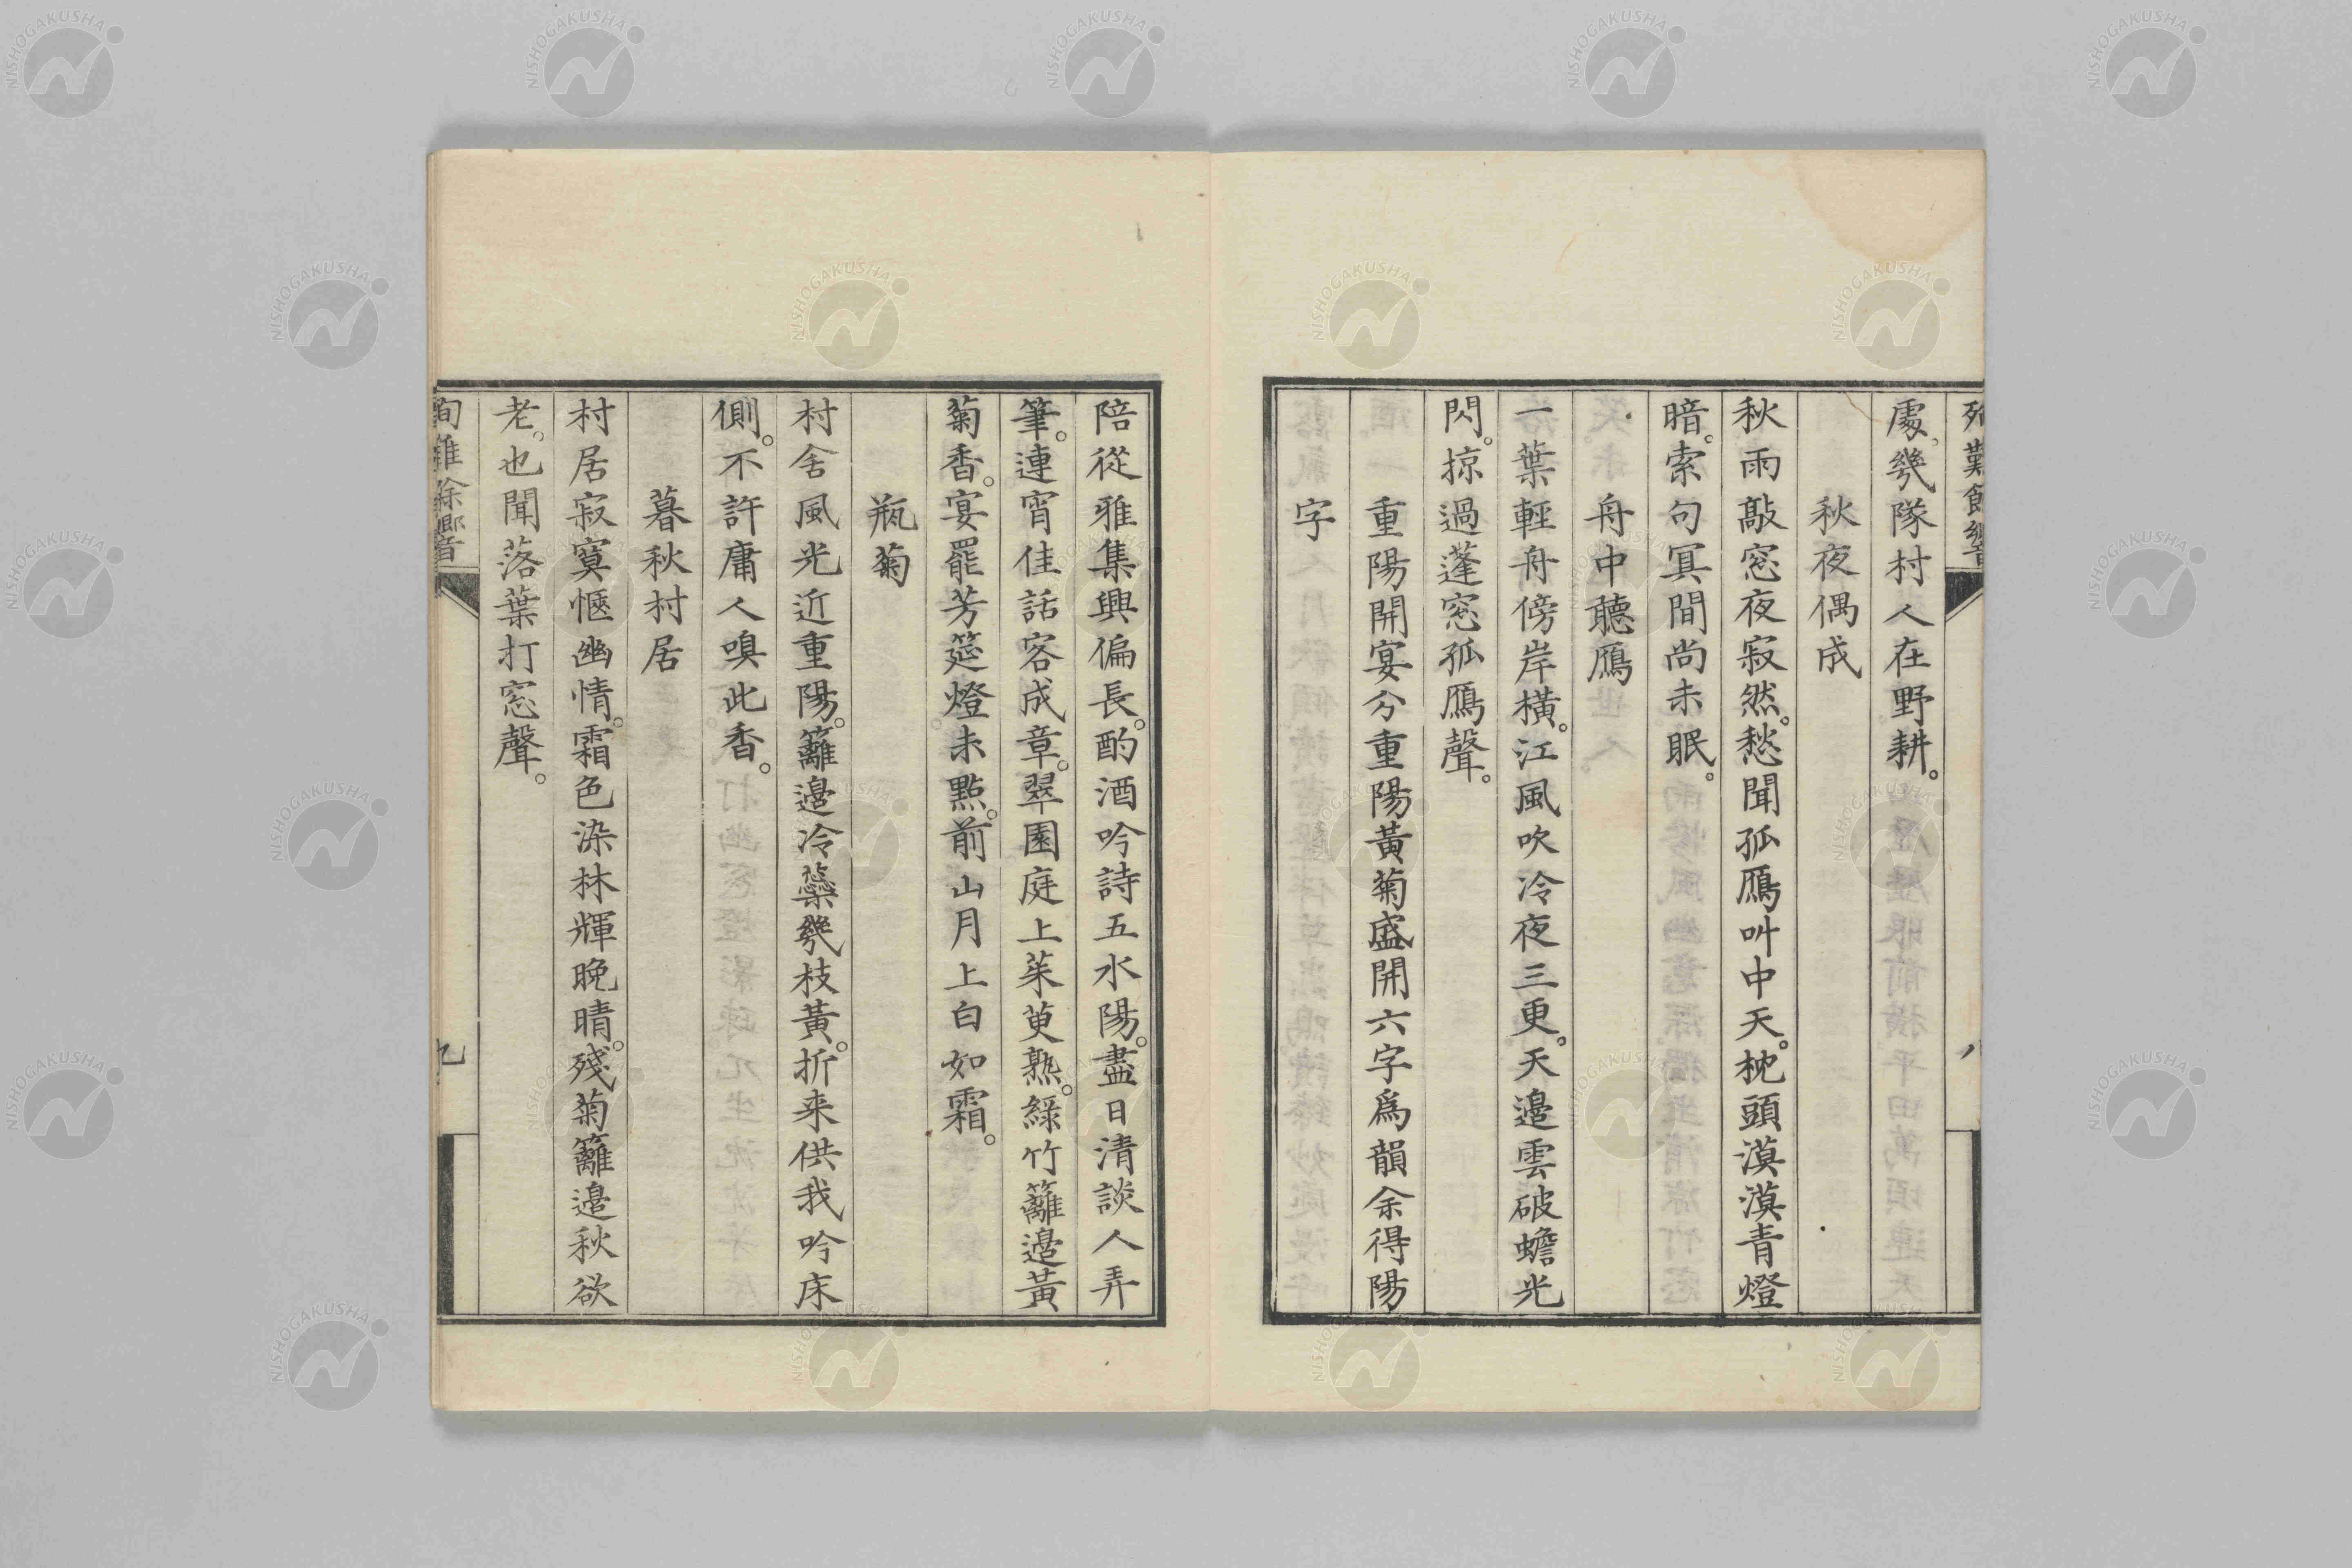 處。幾隊村人在野耕。
秋夜偶成
秋雨敲窓夜寂然。愁聞孤鴈叫中天。枕頭漠漠青燈
暗。索句冥間尚未眠。
舟中聽鴈
一葉輕舟傍岸橫。江風吹冷夜三更。天邉雲破蟾光
閃。掠過蓬窓孤鴈聲。
重陽開宴分重陽黃菊盛開六字爲韻余得陽
字
陪從雅集興偏長。酌酒吟詩五水陽。盡日清談人弄
筆。連宵佳話客成章。翠園庭上茱萸熟。綠竹籬邉黃
菊香。宴罷芳筵燈未點。前山月上白如霜。
瓶菊
村舍風光近重陽。籬邉冷蘂幾枝黃。折来供我吟床
側。不許庸人嗅此香。
暮秋村居
村居寂寞愜幽情。霜色染林輝晚晴。殘菊籬邉秋欲
老。也聞落葉打窓聲。
九
NISHOGAKUSHA